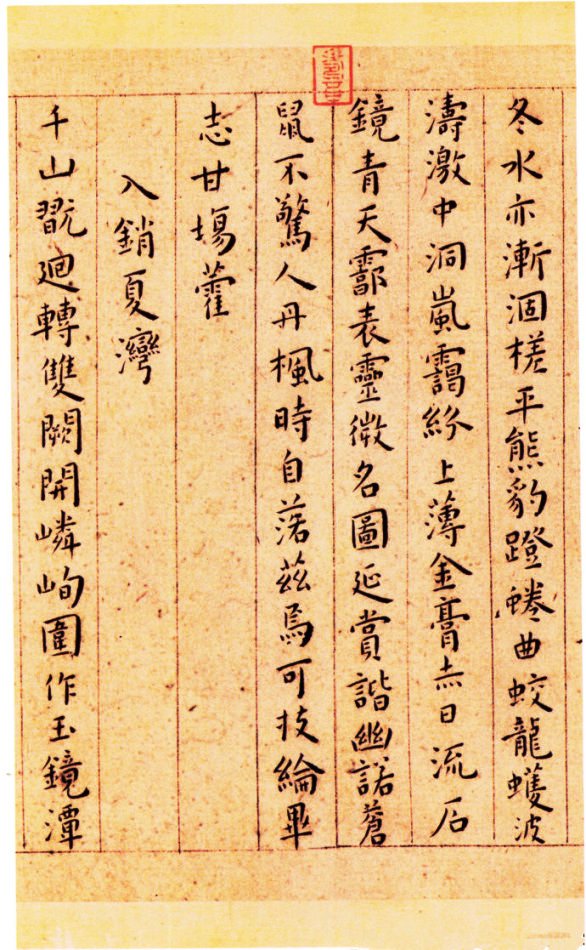 冬水亦漸涸槎平熊豹蹬蜷曲蛟龍蠖波
濤激中洞嵐靄紛上薄金膏赤日流石
鏡青天霩表靈微名圖延賞諧幽諾蒼
鼠不驚人丹楓時自落茲焉可投綸畢
志甘場藿
入銷夏灣
千山翫迴轉雙闕開嶙峋圍作玉鏡潭